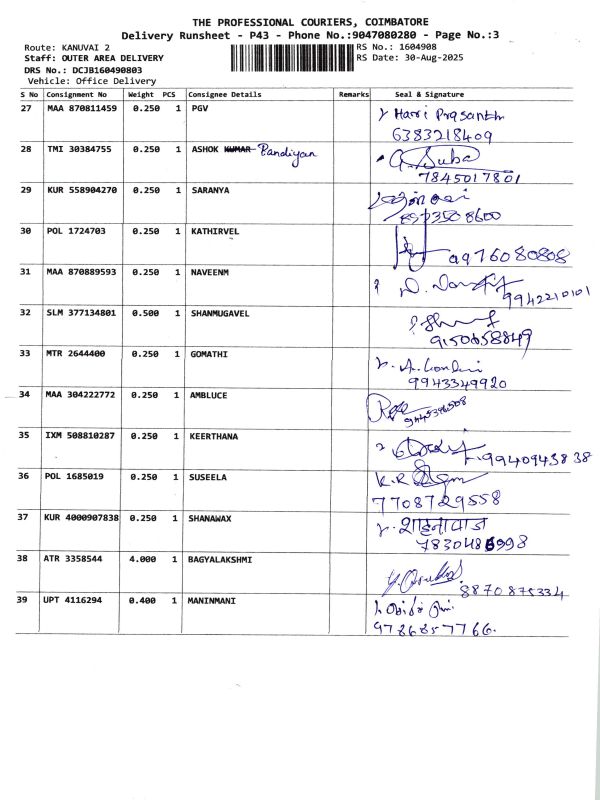 THE PROFESSIONAL COURIERS, COIMBATORE
Delivery Runsheet - P43 - Phone No.:9047080280 - Page No.:3
Route: KANUVAI 2
RS No.: 1604908
Staff: OUTER AREA DELIVERY
RS Date: 30-Aug-2025
DRS No.: DCJB160490803
Vehicle: Office Delivery
S No Consignment No Weight PCS Consignee Details Remarks Seal & Signature
27 MAA 870811459 0.250 1 PGV Hari Prasanth
6383218409
28 TMI 30384755 0.250 1 ASHOK KUMAR Pandiyan Suba
7845017801
29 KUR 558904270 0.250 1 SARANYA
30 POL 1724703 0.250 1 KATHIRVEL
9976080808
31 MAA 870889593 0.250 1 NAVEENM
9942210101
32 SLM 377134801 0.500 1 SHANMUGAVEL
9150658849
33 MTR 2644400 0.250 1 GOMATHI
9943349920
34 MAA 304222772 0.250 1 AMBLUCE
35 IXM 508810287 0.250 1 KEERTHANA
9940943838
36 POL 1685019 0.250 1 SUSEELA K.R
7708729558
37 KUR 4000907838 0.250 1 SHANAWAX शाहनावाज
7830486998
38 ATR 3358544 4.000 1 BAGYALAKSHMI
8870875334
39 UPT 4116294 0.400 1 MANINMANI
9786857766.